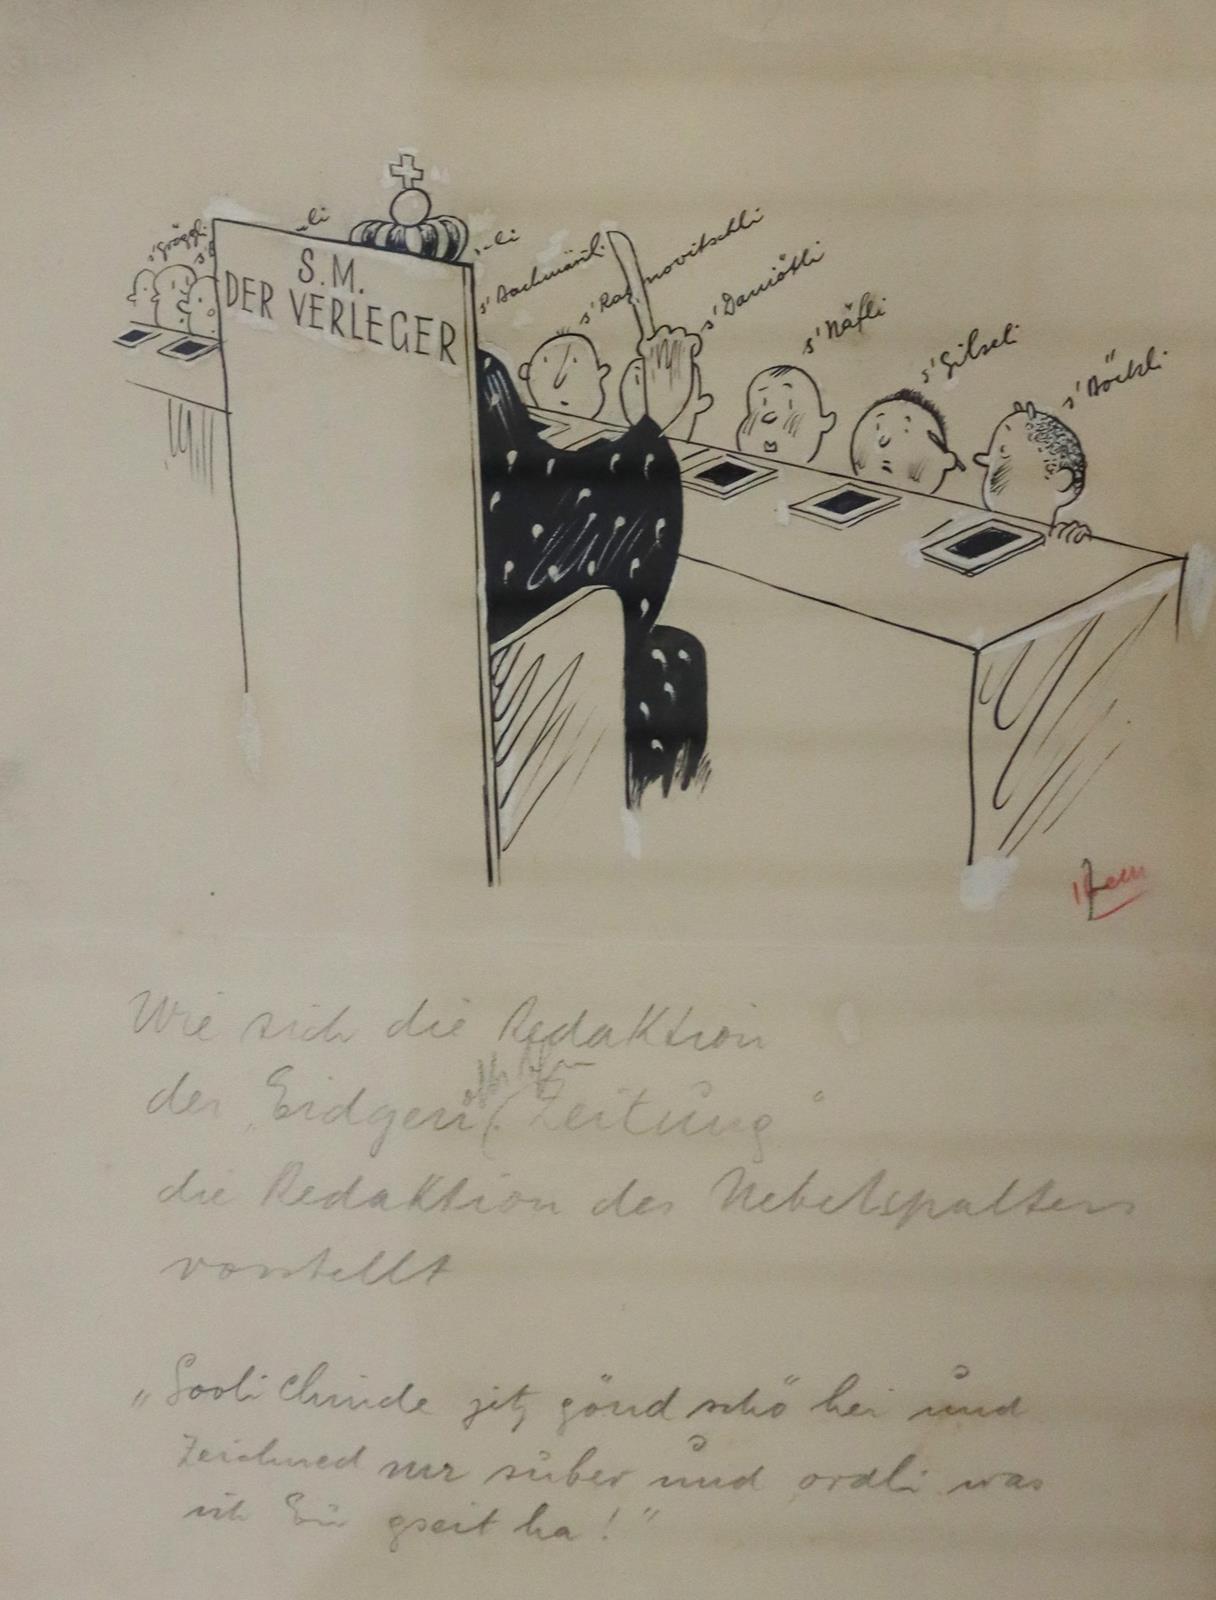 s'Gröggli
s'
..li
S.M.
DER VERLEGER
..li
s'Bachmänli
s' Ra  novitschli
s'Daniöthli
s'Näfli
s'Gilseli
s'Böckli
Wie sich die Redaktion
der „Eidgen. Zeitung“
die Redaktion des Nebelspalters
vorstellt
„Sooli Chinde jitz gönd schö hei und
Zeichned mr suber und ordli was
ich Eü gseit ha!“